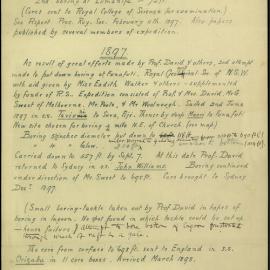 2nd boring at Funafuti
(Cores sent to Royal College of Science for examination)
See Report Proc. Roy. Soc. February 11th 1897. Also papers
published by several members of expedition.
1897.
As result of great efforts made by Prof. David & others, 2nd attempt
made to put down boring at Funafuti. Royal Soc of N.S.W.
with aid given by Miss Eadith Walker & others - supplemented
by funds of R.S. Expedition consisted of Prof. & Mrs. David, Mr G.
Sweet of Melbourne, Mr. Poole, & Mr Woolnough. Sailed 2nd June
1897 in s.s. to Suva, Fiji. thence by ship to Funafuti.
New site chosen for boring a mile N.E. of Church (see map)
Boring diameter put down to
" 4" "
Carried down to 557 ft by Sept. 7. At this date Prof. David
returned to Sydney in s.s. John Williams. Boring continued
under direction of Mr. Sweet to 698 ft. Core brought to Sydney
Dec. 1897
(Small boring-tackle taken out by Prof David in hopes of
boring in lagoon. No spot found in which tackle could be set up
- hence failure)
The core from surface to 698 ft. sent to England in s.s.
Orizaba in 11 core boxes. Arrived March 1898.